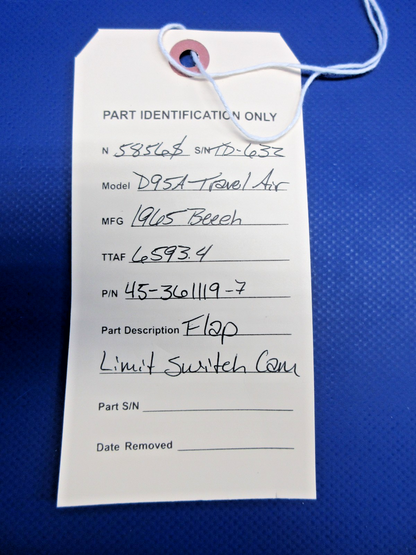 PART IDENTIFICATION ONLY
N 5856S S/N TD-632
Model D95A Travel Air
MFG 1965 Beech
TTAF 6593.4
P/N 45-361119-7
Part Description Flap
Limit Switch Cam
Part S/N
Date Removed